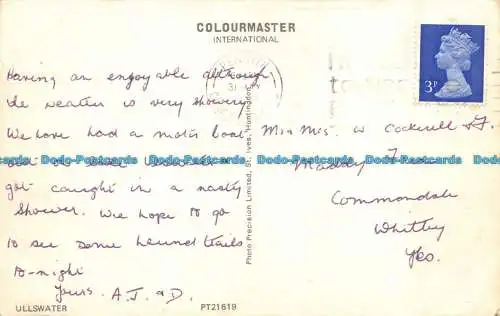 COLOURMASTER
INTERNATIONAL
Having an enjoyable although
the weather is very showery
We have had a motor boat
out on
got caught in a nasty
shower. We hope to go
to see some hound trails
to-night
Yours. A. J. & D.
ULLSWATER
PT21619
Photo Precision Limited, St. Ives, Huntingdon
3P
Mr & Mrs. W Cockerill & F.
Commondale
Whitby
Yks.
Dodo-Postcards Dodo-Postcards Dodo-Postcards Dodo-Postcards Dodo-Postcards